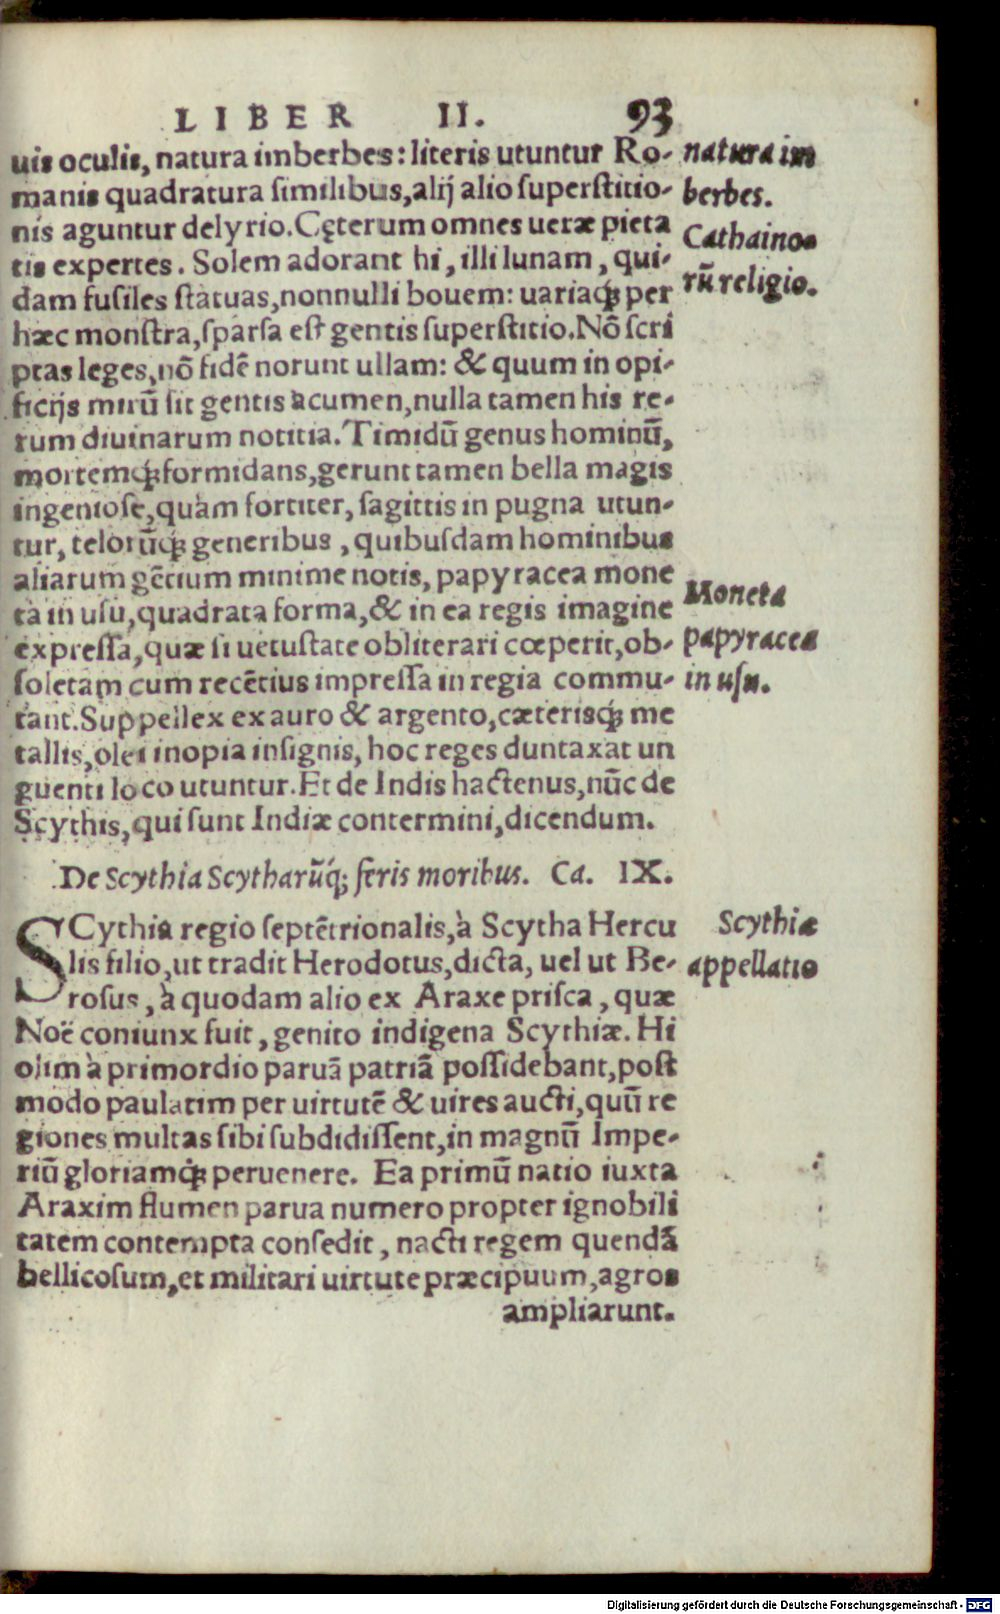 LIBER II. 93
uis oculis, natura imberbes: literis utuntur Ro-
manis quadratura similibus, alij alio superstitio-
nis aguntur delyrio. Cęterum omnes ueræ pieta
tis expertes. Solem adorant hi, illi lunam, qui-
dam fusiles statuas, nonnulli bouem: uariaq́; per
hæc monstra, sparsa est gentis superstitio. Nõ scri
ptas leges, nõ fidẽ norunt ullam: & quum in opi-
ficijs mirũ sit gentis acumen, nulla tamen his re-
rum diuinarum notitia. Timidũ genus hominũ,
mortemq́; formidans, gerunt tamen bella magis
ingeniose, quàm fortiter, sagittis in pugna utun-
tur, telorũq́; generibus, quibusdam hominibus
aliarum gẽtium minime notis, papyracea mone
ta in usu, quadrata forma, & in ea regis imagine
expressa, quæ si uetustate obliterari cœperit, ob-
soletam cum recẽtius impressa in regia commu-
tant. Suppellex ex auro & argento, cæterisq́; me
tallis, olei inopia insignis, hoc reges duntaxat un
guenti loco utuntur. Et de Indis hactenus, nũc de
Scythis, qui sunt Indiæ contermini, dicendum.
De Scythia Scytharũq́; feris moribus. Ca. IX.
SCythia regio septẽtrionalis, à Scytha Hercu
lis filio, ut tradit Herodotus, dicta, uel ut Be-
rosus, à quodam alio ex Araxe prisca, quæ
Noë coniunx fuit, genito indigena Scythiæ. Hi
olim à primordio paruã patriã possidebant, post
modo paulatim per uirtutẽ & uires aucti, quũ re
giones multas sibi subdidissent, in magnũ Impe-
riũ gloriamq́; peruenere. Ea primũ natio iuxta
Araxim flumen parua numero propter ignobili
tatem contempta consedit, nacti regem quendã
bellicosum, et militari uirtute præcipuum, agros
ampliarunt.
natura im
berbes.
Cathaino-
rũ religio.
Moneta
papyracea
in usu.
Scythiæ
appellatio
Digitalisierung gefördert durch die Deutsche Forschungsgemeinschaft - DFG